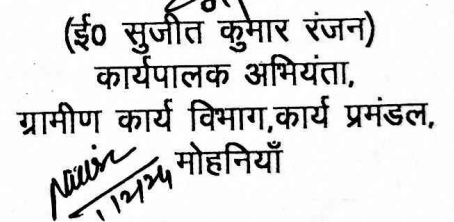 (ई० सुजीत कुमार रंजन)
कार्यपालक अभियंता,
ग्रामीण कार्य विभाग,कार्य प्रमंडल,
मोहनियाँ